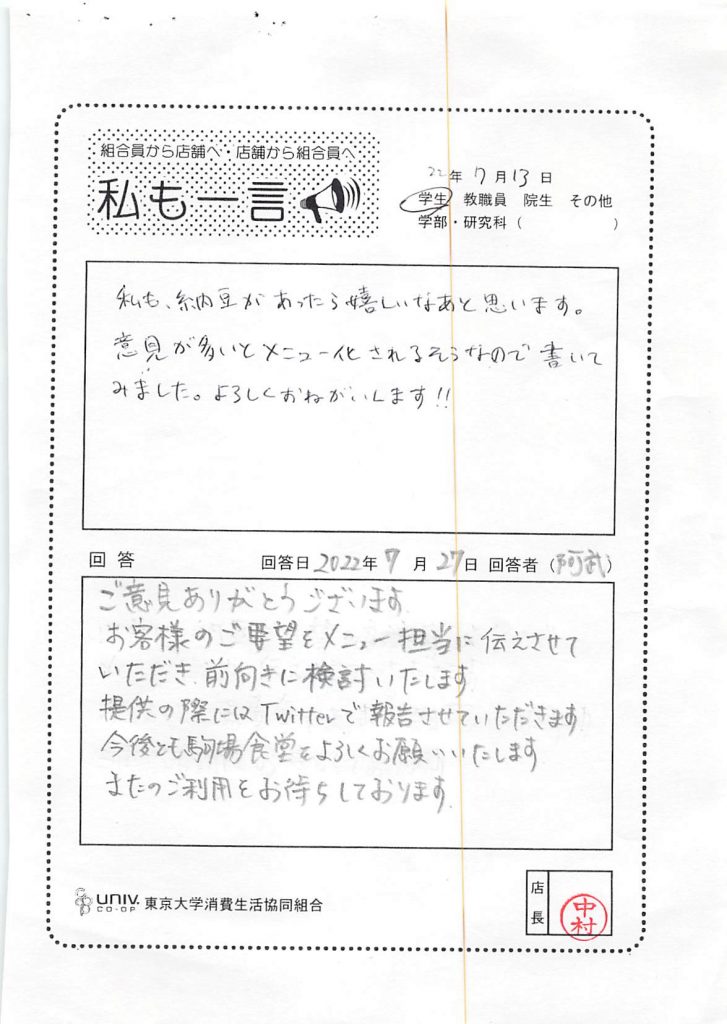 組合員から店舗へ・店舗から組合員へ
私も一言
22年 7月13日
学生 教職員 院生 その他
学部・研究科（　　　　　　）
私も、納豆があったら嬉しいなあと思います。
意見が多いとメニュー化されるそうなので書いて
みました。よろしくおねがいします!!
回答 回答日2022年7月27日 回答者（阿武）
ご意見ありがとうございます
お客様のご要望をメニュー担当に伝えさせて
いただき 前向きに検討いたします
提供の際にはTwitterで報告させていただきます
今後とも駒場食堂をよろしくお願いいたします
またのご利用をお待ちしております
UNIV. CO-OP 東京大学消費生活協同組合
店長
中村